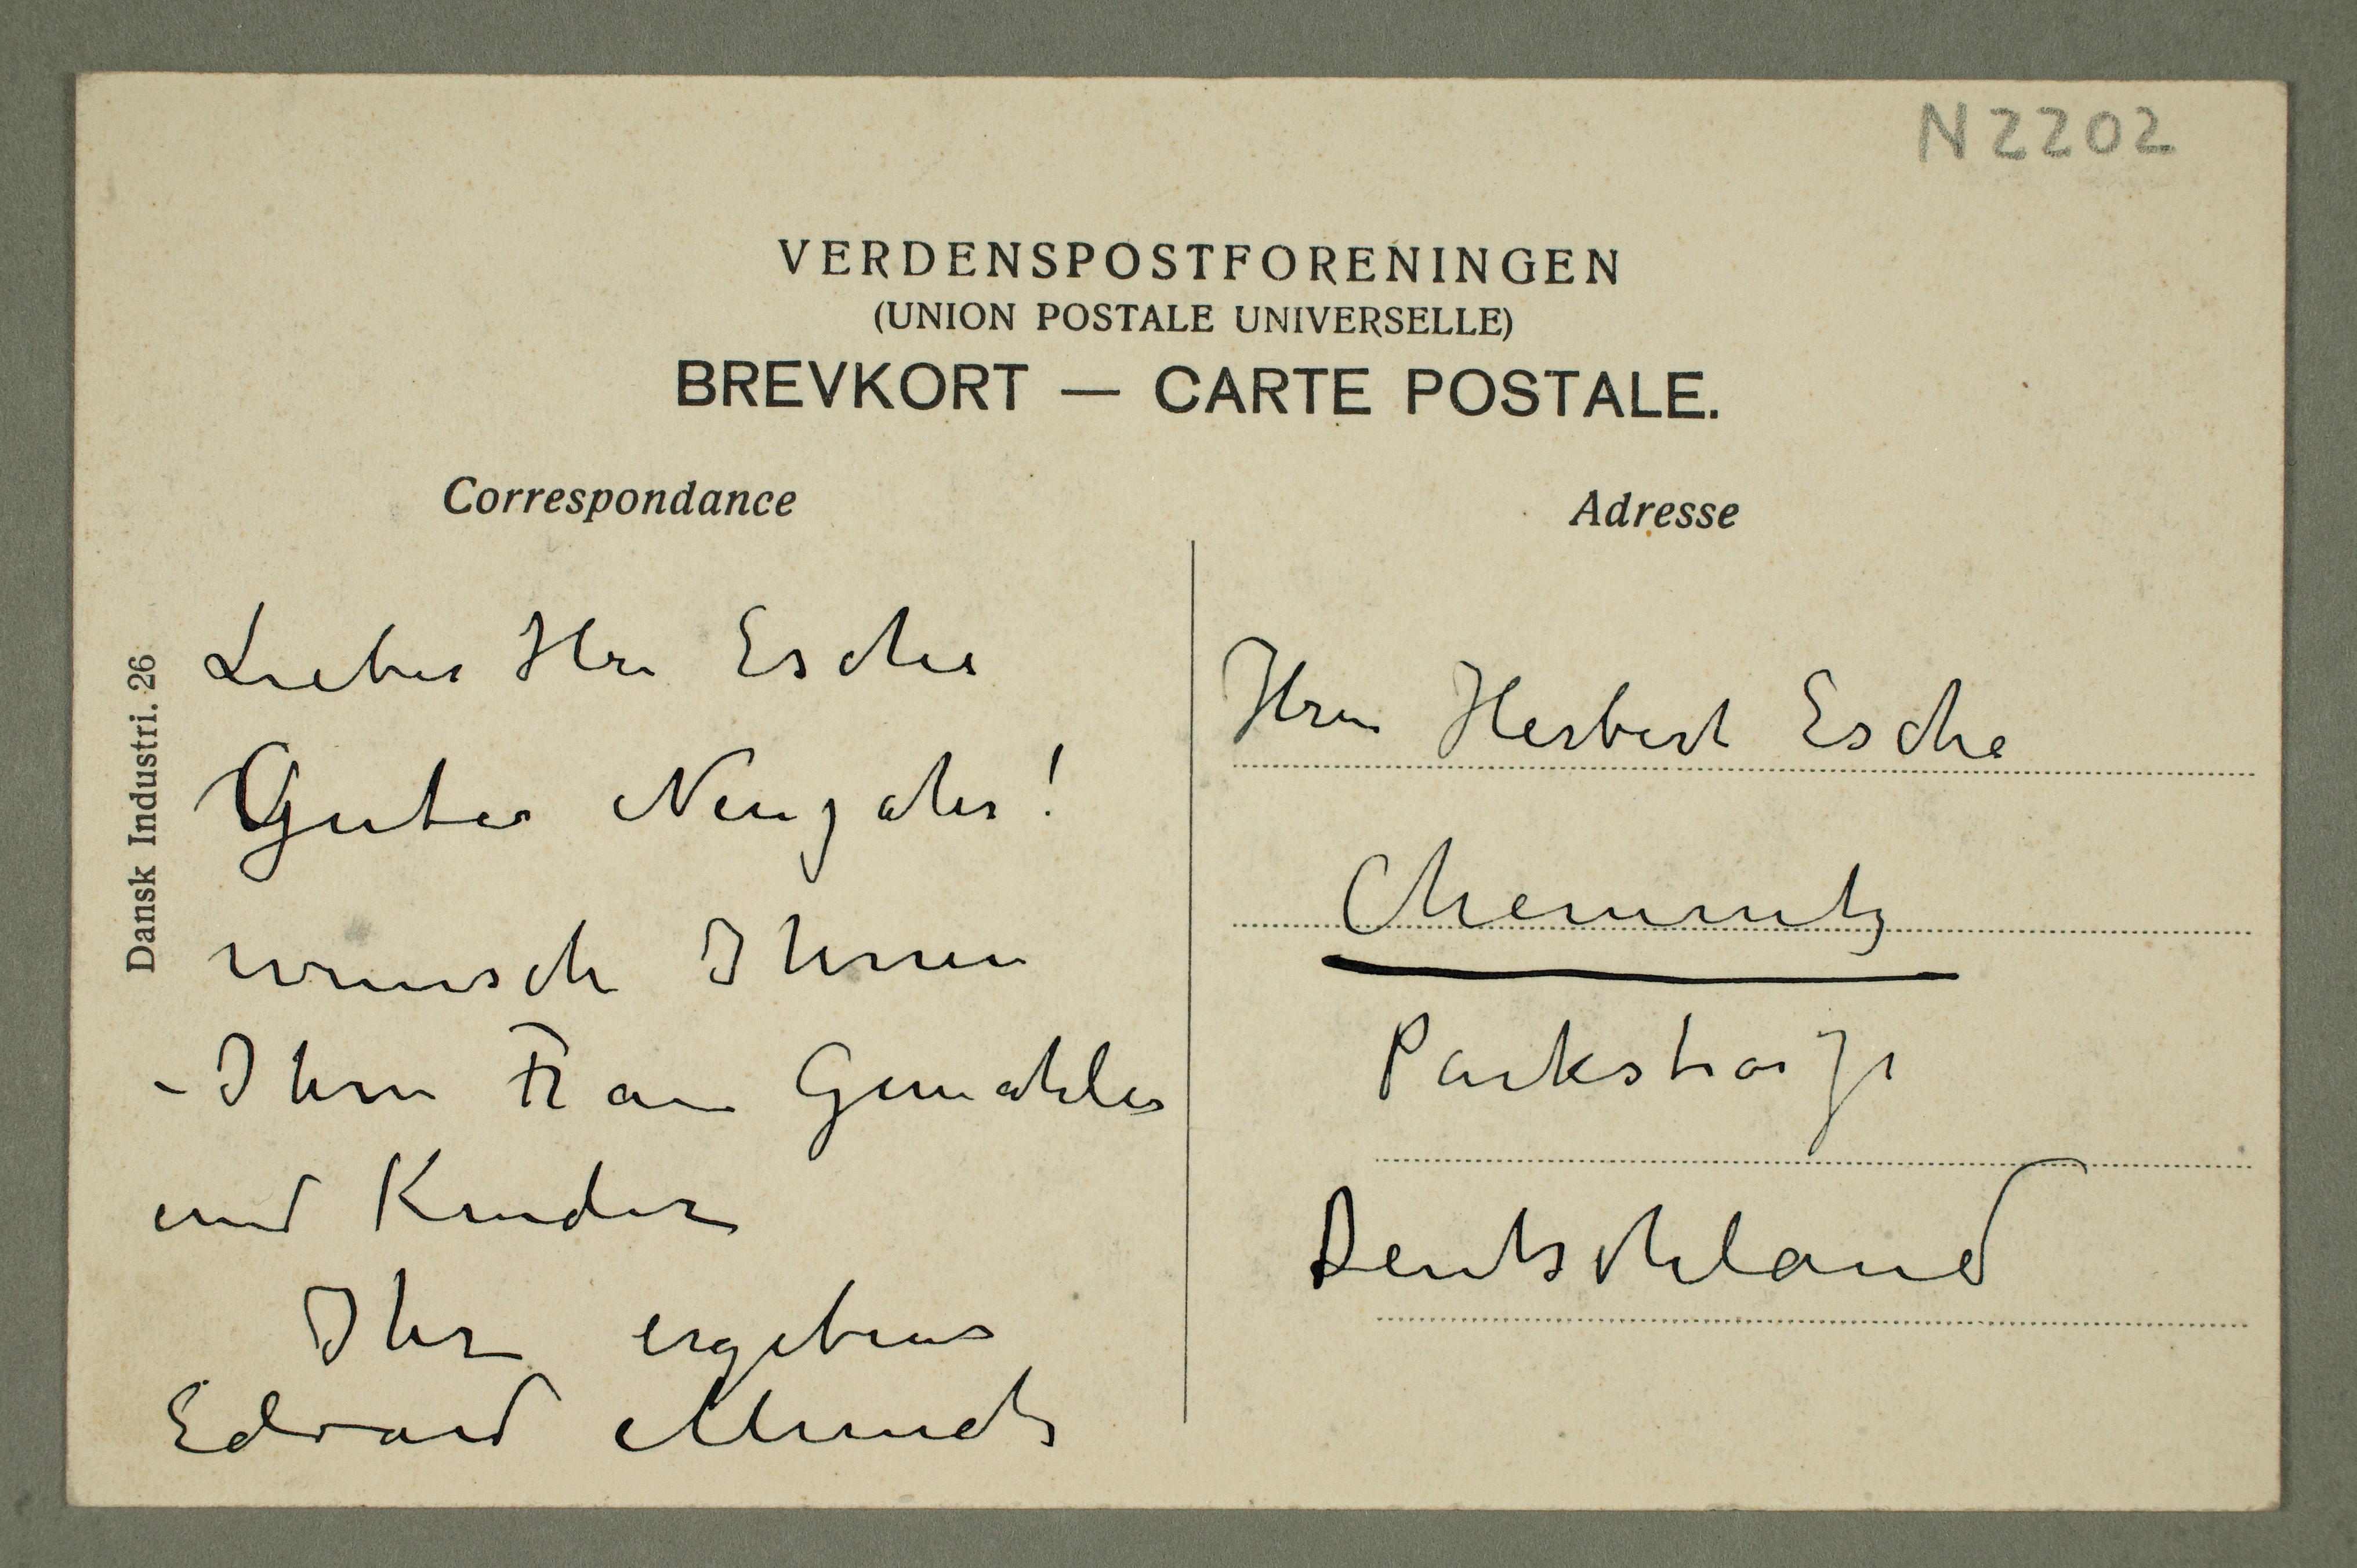 N 2202
VERDENSPOSTFORENINGEN
(UNION POSTALE UNIVERSELLE)
BREVKORT — CARTE POSTALE.
Correspondance
Dansk Industri. 26
Lieber Herr Esche
Gutes Neujahr!
wünsch Ihnen
- Ihrer Frau Gemahlin
und Kinder
Ihr ergebens
Edvard Munch
Adresse
Herrn Herbert Esche
Chemnitz
Parkstraße
Deutschland